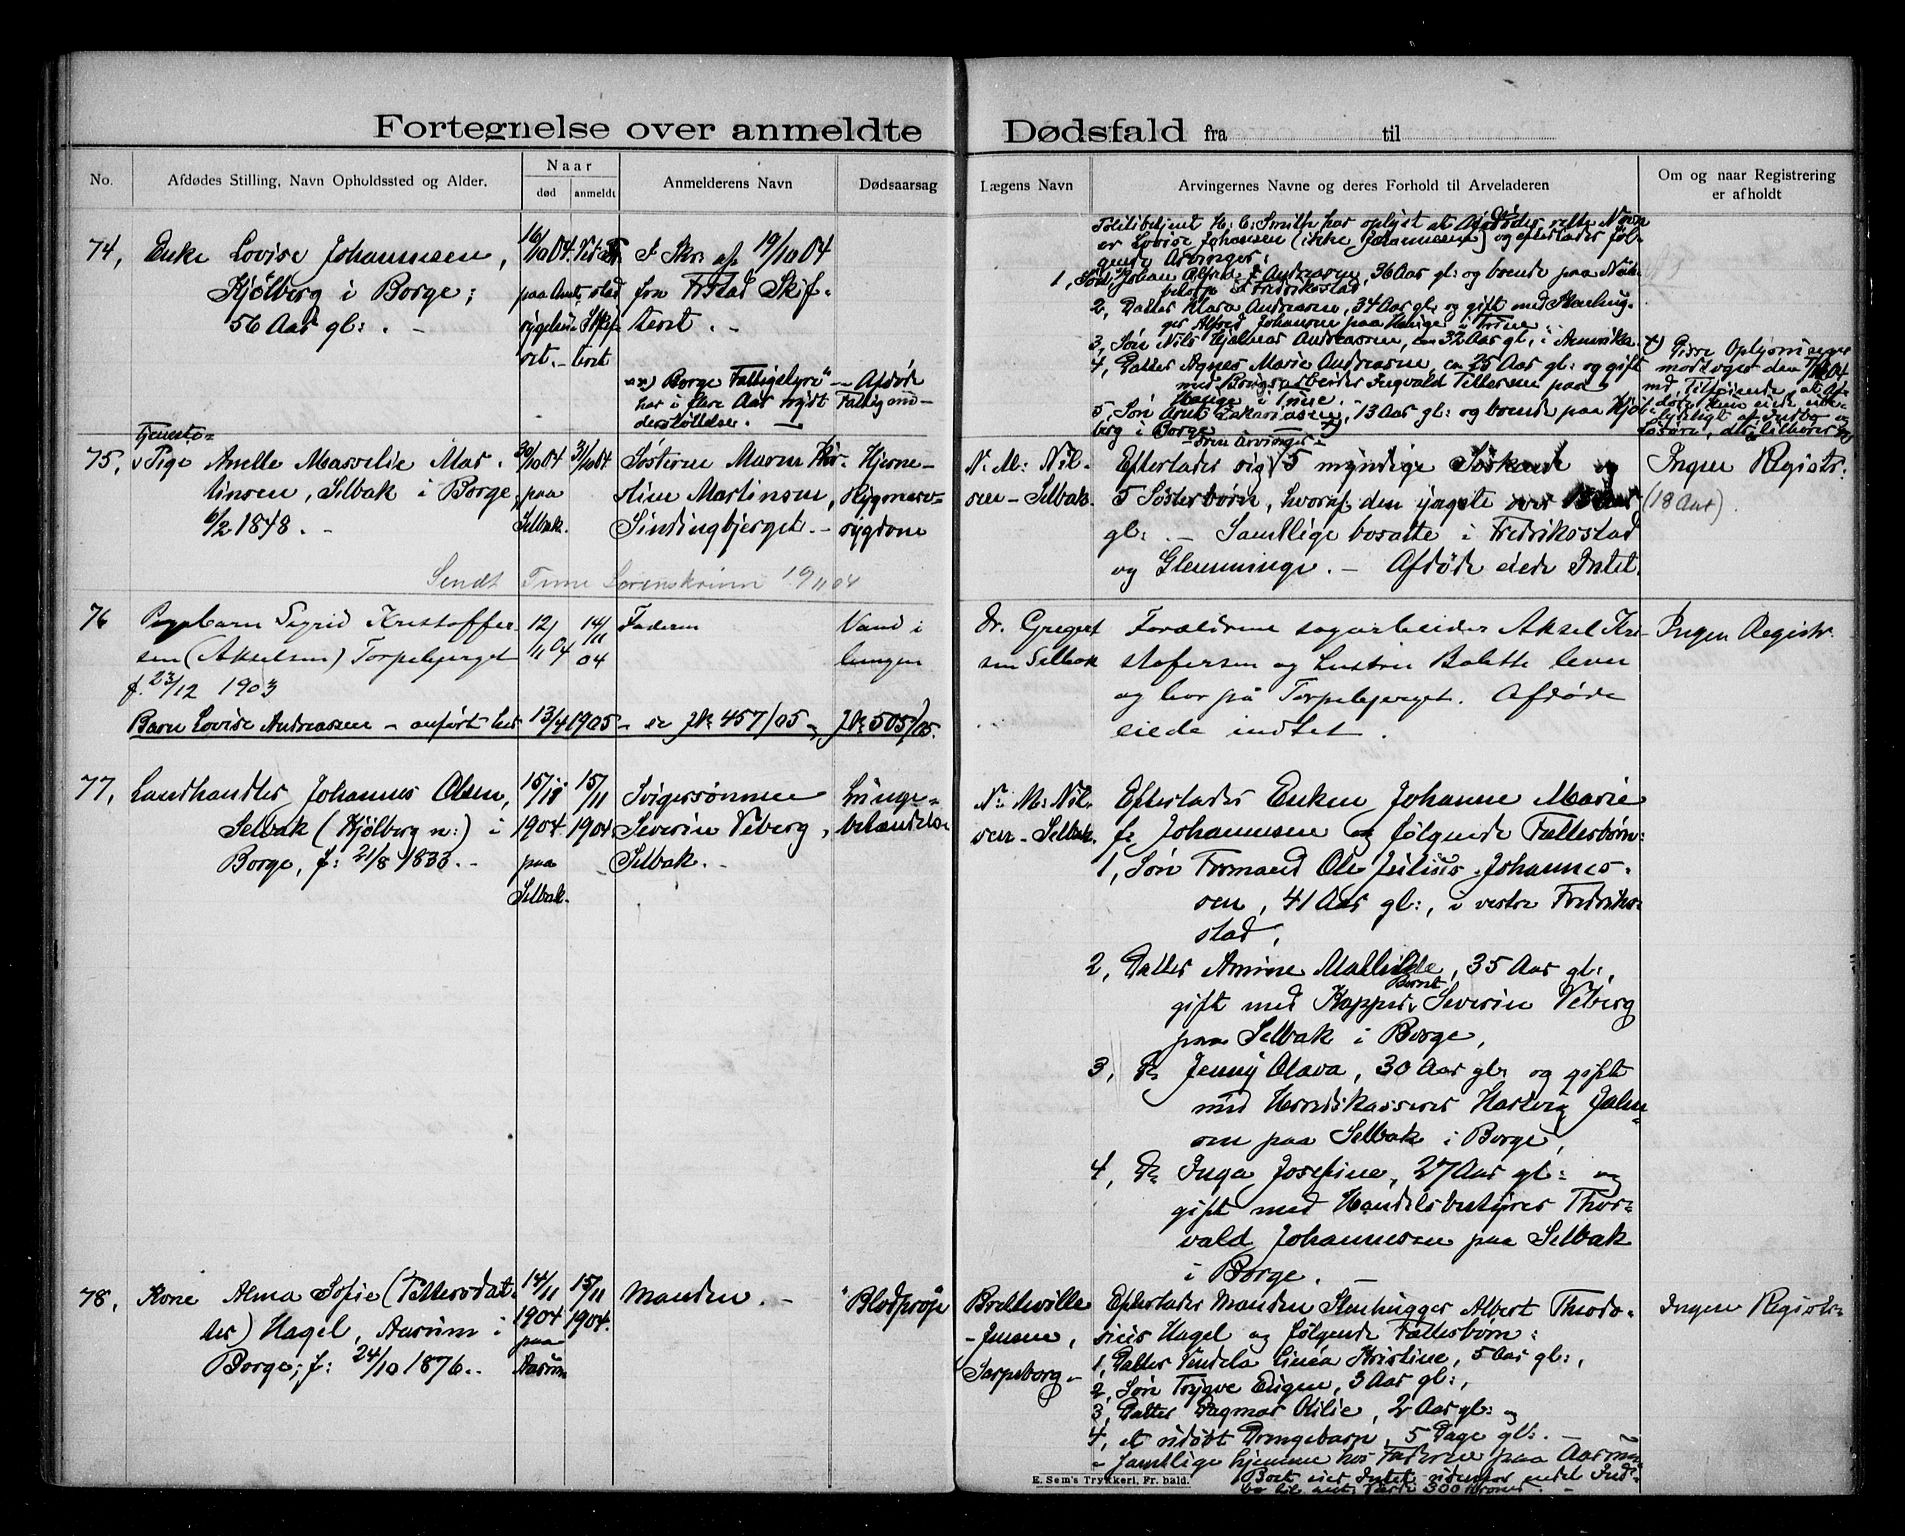 Fortegnelse over anmeldte Dødsfald fra til
No.
Afdødes Stilling, Navn Opholdssted og Alder.
Naar
død
anmeldt
Anmelderens Navn
Dødsaarsag
Lægens Navn
Arvingernes Navne og deres Forhold til Arveladeren
Om og naar Registrering
er afholdt
74, Enke Lovise Johannesen,
Kjölberg i Borge;
56 Aar gl: . -
16/10 04.
paa Amts
sygehuset
stad
Skif-
teret
I Skr. af 19/10 04
fra Frstad Skif-
teret. -
xx) Borge Fattigstyre" - Afdøde
har i flere Aar nydt Fattigund-
derstøttelse. -
H. C. Smith har oplyst at Afdødes rette Navn
er Lovise Johansen (ikke Johannesen) og efterlader føl-
gende Arvinger:
1, Søn, Johan Alfred Andreasen, 36 Aar gl: og boende paa
Fredrikstad
2, Datter Klara Andreasen, 34 Aar gl: og gift med Stenhug-
ger Alfred Johansen paa Hauge i Tune
3, Søn Nils Hjalmar Andreasen, ca 32 Aar gl, i Amerika.
4, Datter Agnes Marie Andreasen, ca 25 Aar gl: og gift
med Brugsarbeider Ingvald Tellefsen paa
Hauge i Tune.
5, Søn Arnt Zakariassen, 13 Aar gl: og boende paa Kjöl-
berg i Borge
x) Disse Oplysninger
modtoges den
75, Tjeneste-
Pige Anelle Masselie Mar-
tinsen, Selbak i Borge,
6/2 1848. -
30/10 04
paa
Selbak.
31/10 04
Søsteren Maren Kir-
stine Martinsen,
Sindingbjerget. -
Hjerne-
Rygmarvs-
sygdom
N. M. Nil-
sen - Selbak.
- som Arvinger -
Efterlader sig 5 myndige Søskende og
5 Søsterbørn, hvoraf den yngste over 18 Aar
gl: . - Samtlige bosatte i Fredrikstad
og Glemminge. - Afdøde eiede Intet.
Ingen Registr.
(18 Aar)
Sendt Tune Sorenskriveri 19/11 04
76 Pigebarn Sigrid Kristoffer-
sen (Akselsen) Torpebjerget
f. 23/12 1903
12/11 04
14/11 04
Faderen
Vand i
lungen
Dr. Gregert
sen Selbak
Forældrene sagarbeider Aksel Kri-
stofersen og hustru Bolette lever
og bor på Torpebjerget. Afdøde
eiede indtet.
Ingen Registr.
Barn Lovise Andreassen - anført her 13/4 1905 - se Jk: 457/05 - Jk: 505/05.
77, Landhandler Johannes Olsen,
Selbak (Kjölberg n:) i
Borge, f: 21/8 1833. -
15/11
1904
paa
Selbak.
15/11
1904.
Svigersønnen
Severin Veberg,
Selbak. -
Lunge-
betændelse
N. M. Nil-
sen - Selbak.
Efterlader Enken Johanne Marie
f. Johannesen og følgende Fællesbørn:
1, Søn Formand Ole Julius Johannes-
sen, 41 Aar gl:, i vestre Fredrik-
stad,
2, Datter Amine Mathilde, 35 Aar gl:,
gift med Kapper Bernt Severin Veberg
paa Selbak i Borge,
3, Do Jenny Olava, 30 Aar gl: og gift
med Herredskasserer Hartvig Johan-
sen paa Selbak i Borge,
4, Do Inga Josefine, 27 Aar gl: og
gift med Handelsbestyrer Thor-
vald Johannessen paa Selbak
i Borge. -
78, Kone Alma Sofie (Pettersdat-
ter) Hagel, Aarum i
Borge; f: 24/10 1876. -
14/11
1904
paa
Aarum
15/11
1904.
Manden. -
Blodprop
Brettville
- Jensen,
Sarpsborg -
Efterlader Manden Stenhugger Albert Theodo-
sius Hagel og følgende Fællesbørn:
1, Datter Vendela Linea Kristine, 5 Aar gl:,
2, Søn Trygve Eugen, 3 Aar gl:,
3, Datter Dagmar Otilie, 2 Aar gl: og
4, et udøbt Drengebarn, 5 Dage gl: . -
- Samtlige hjemme hos Faderen paa Aarum
Boet eier Intet udenfor endel Ind-
bo til ant. Værdi 300 Kroner. -
Ingen Registr.
E. Sem's Trykkeri, Fr.hald.